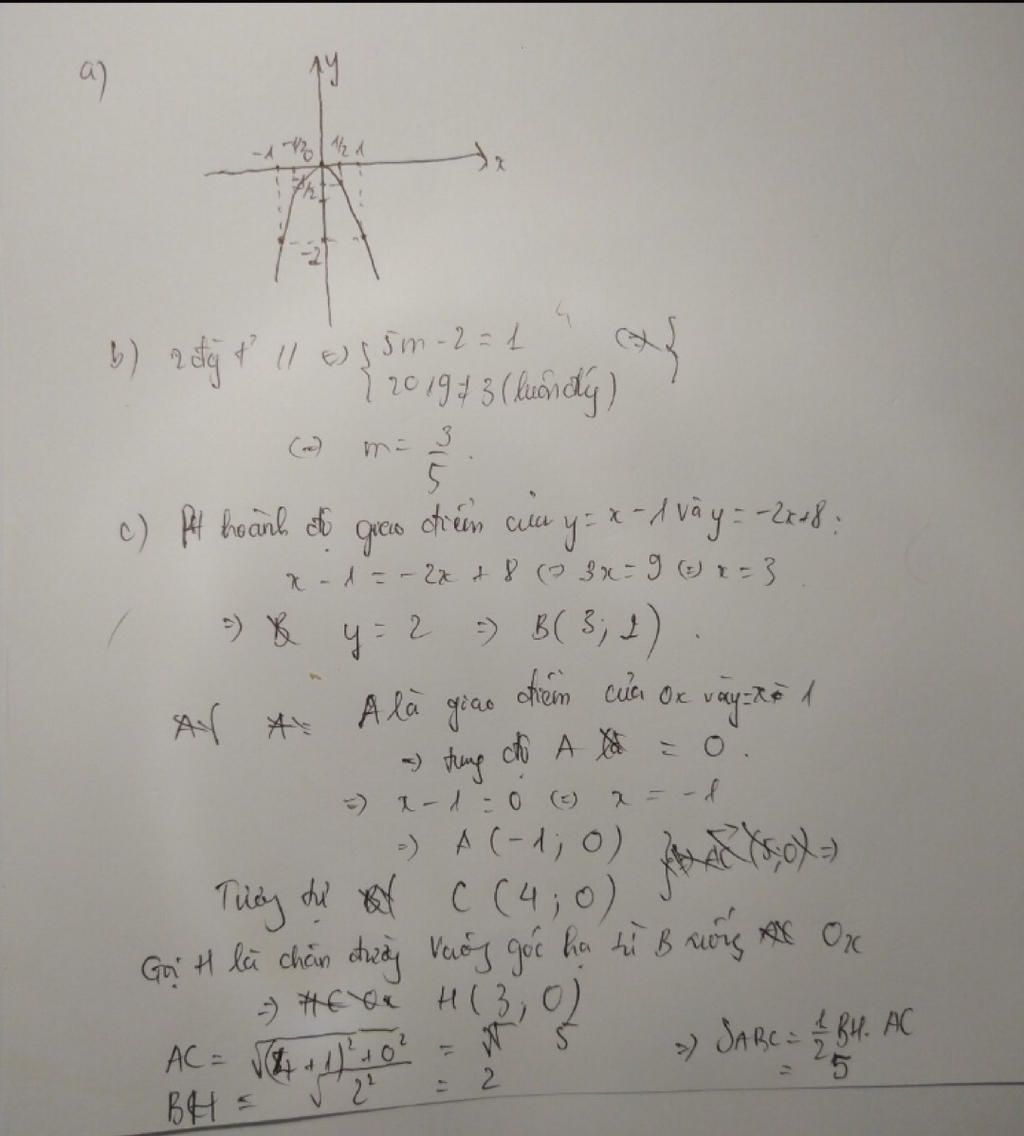 a)
y
-1 -1/2 0 1/2 1
x
-1/2
-2
b) 2 đg t' // <=> { 5m - 2 = 1 <=> {
2019 ≠ 3 (luôn đg)
<=> m = 3/5.
c) Pt hoành độ giao điểm của y = x - 1 và y = -2x+8:
x - 1 = -2x + 8 <=> 3x = 9 <=> x = 3
=> y = 2 => B(3; 2).
A là giao điểm của Ox và y=x-1
=> tung độ A = 0.
=> x - 1 = 0 <=> x = -1
=> A(-1; 0) } AC (5;0) =>
Tương tự C(4; 0)
Gọi H là chân đường vuông góc hạ từ B xuống Ox
=> H(3, 0)
AC = √((4+1)²+0²) = 5 => SABC = 1/2 BH. AC
BH = √2² = 2 = 5